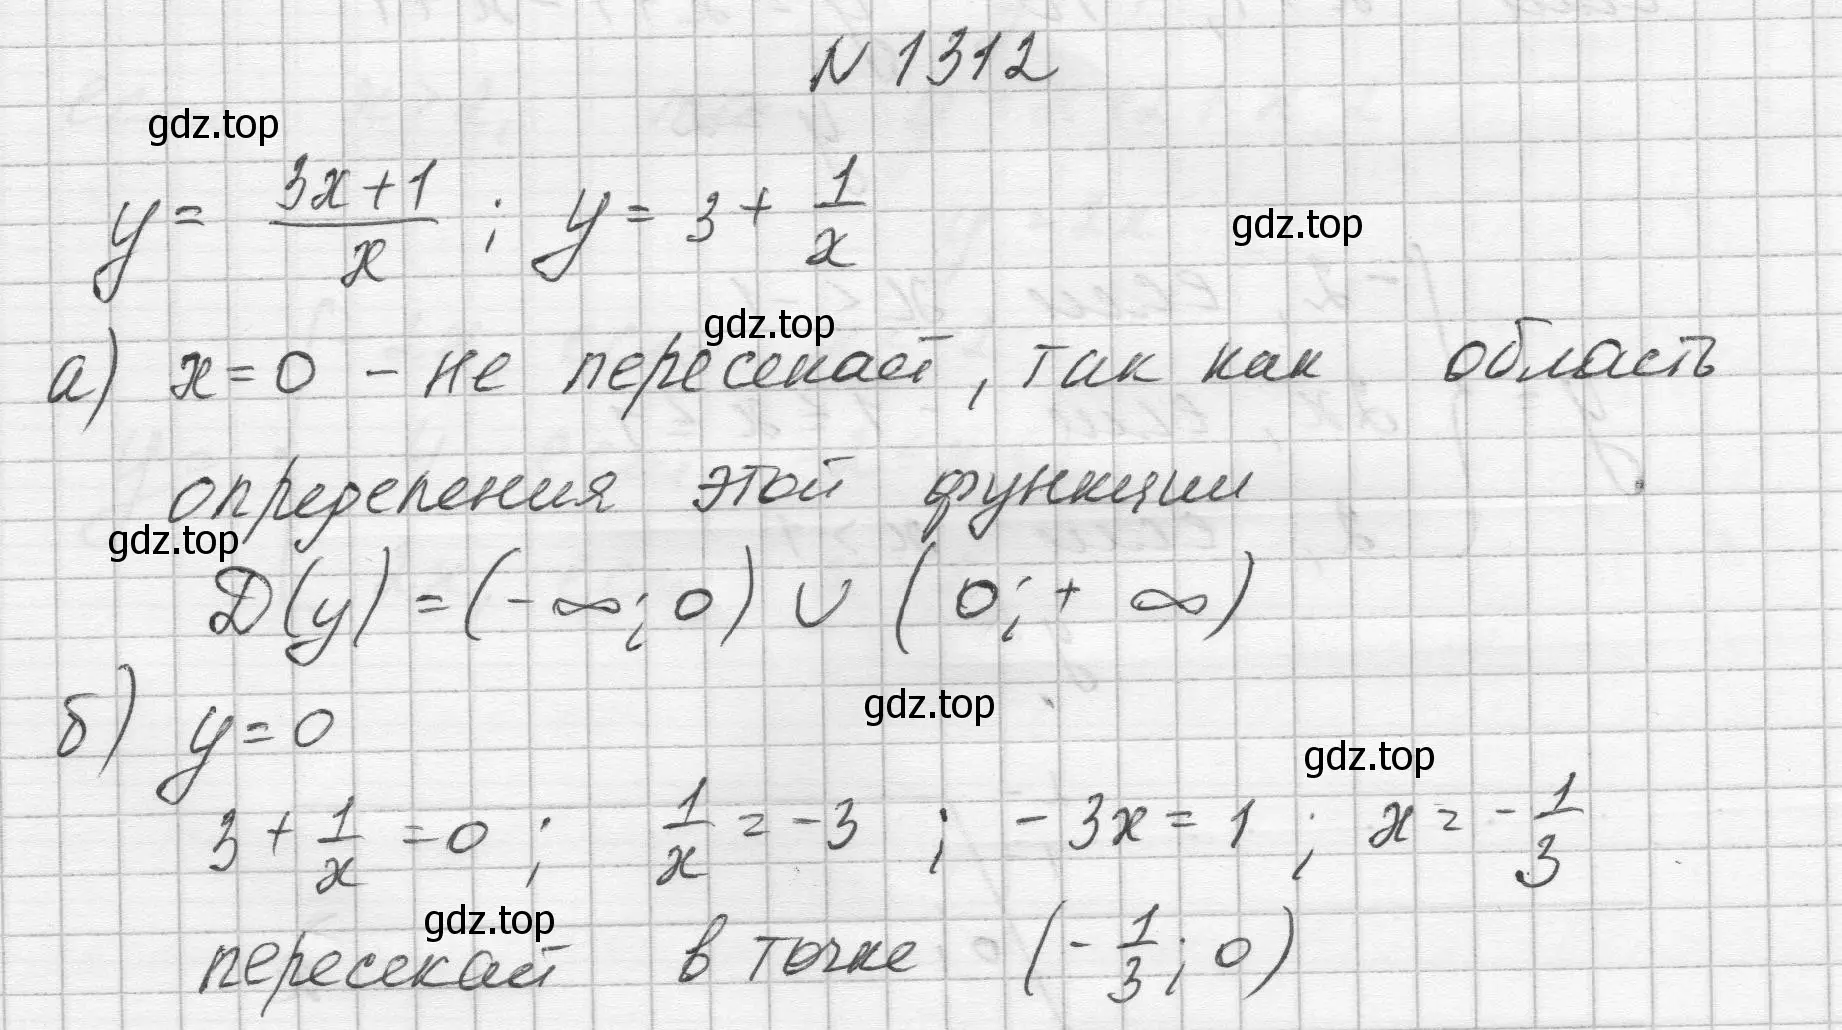 N 1312
gdz.top
y = (3x+1)/x ; y = 3 + 1/x
gdz.top
gdz.top
а) x = 0 - не пересекает, так как область
определения этой функции
gdz.top
D(y) = (-∞; 0) ∪ (0; +∞)
gdz.top
б) y = 0
gdz.top
3 + 1/x = 0 ; 1/x = -3 ; -3x = 1 ; x = -1/3
gdz.top
пересекает в точке (-1/3; 0)